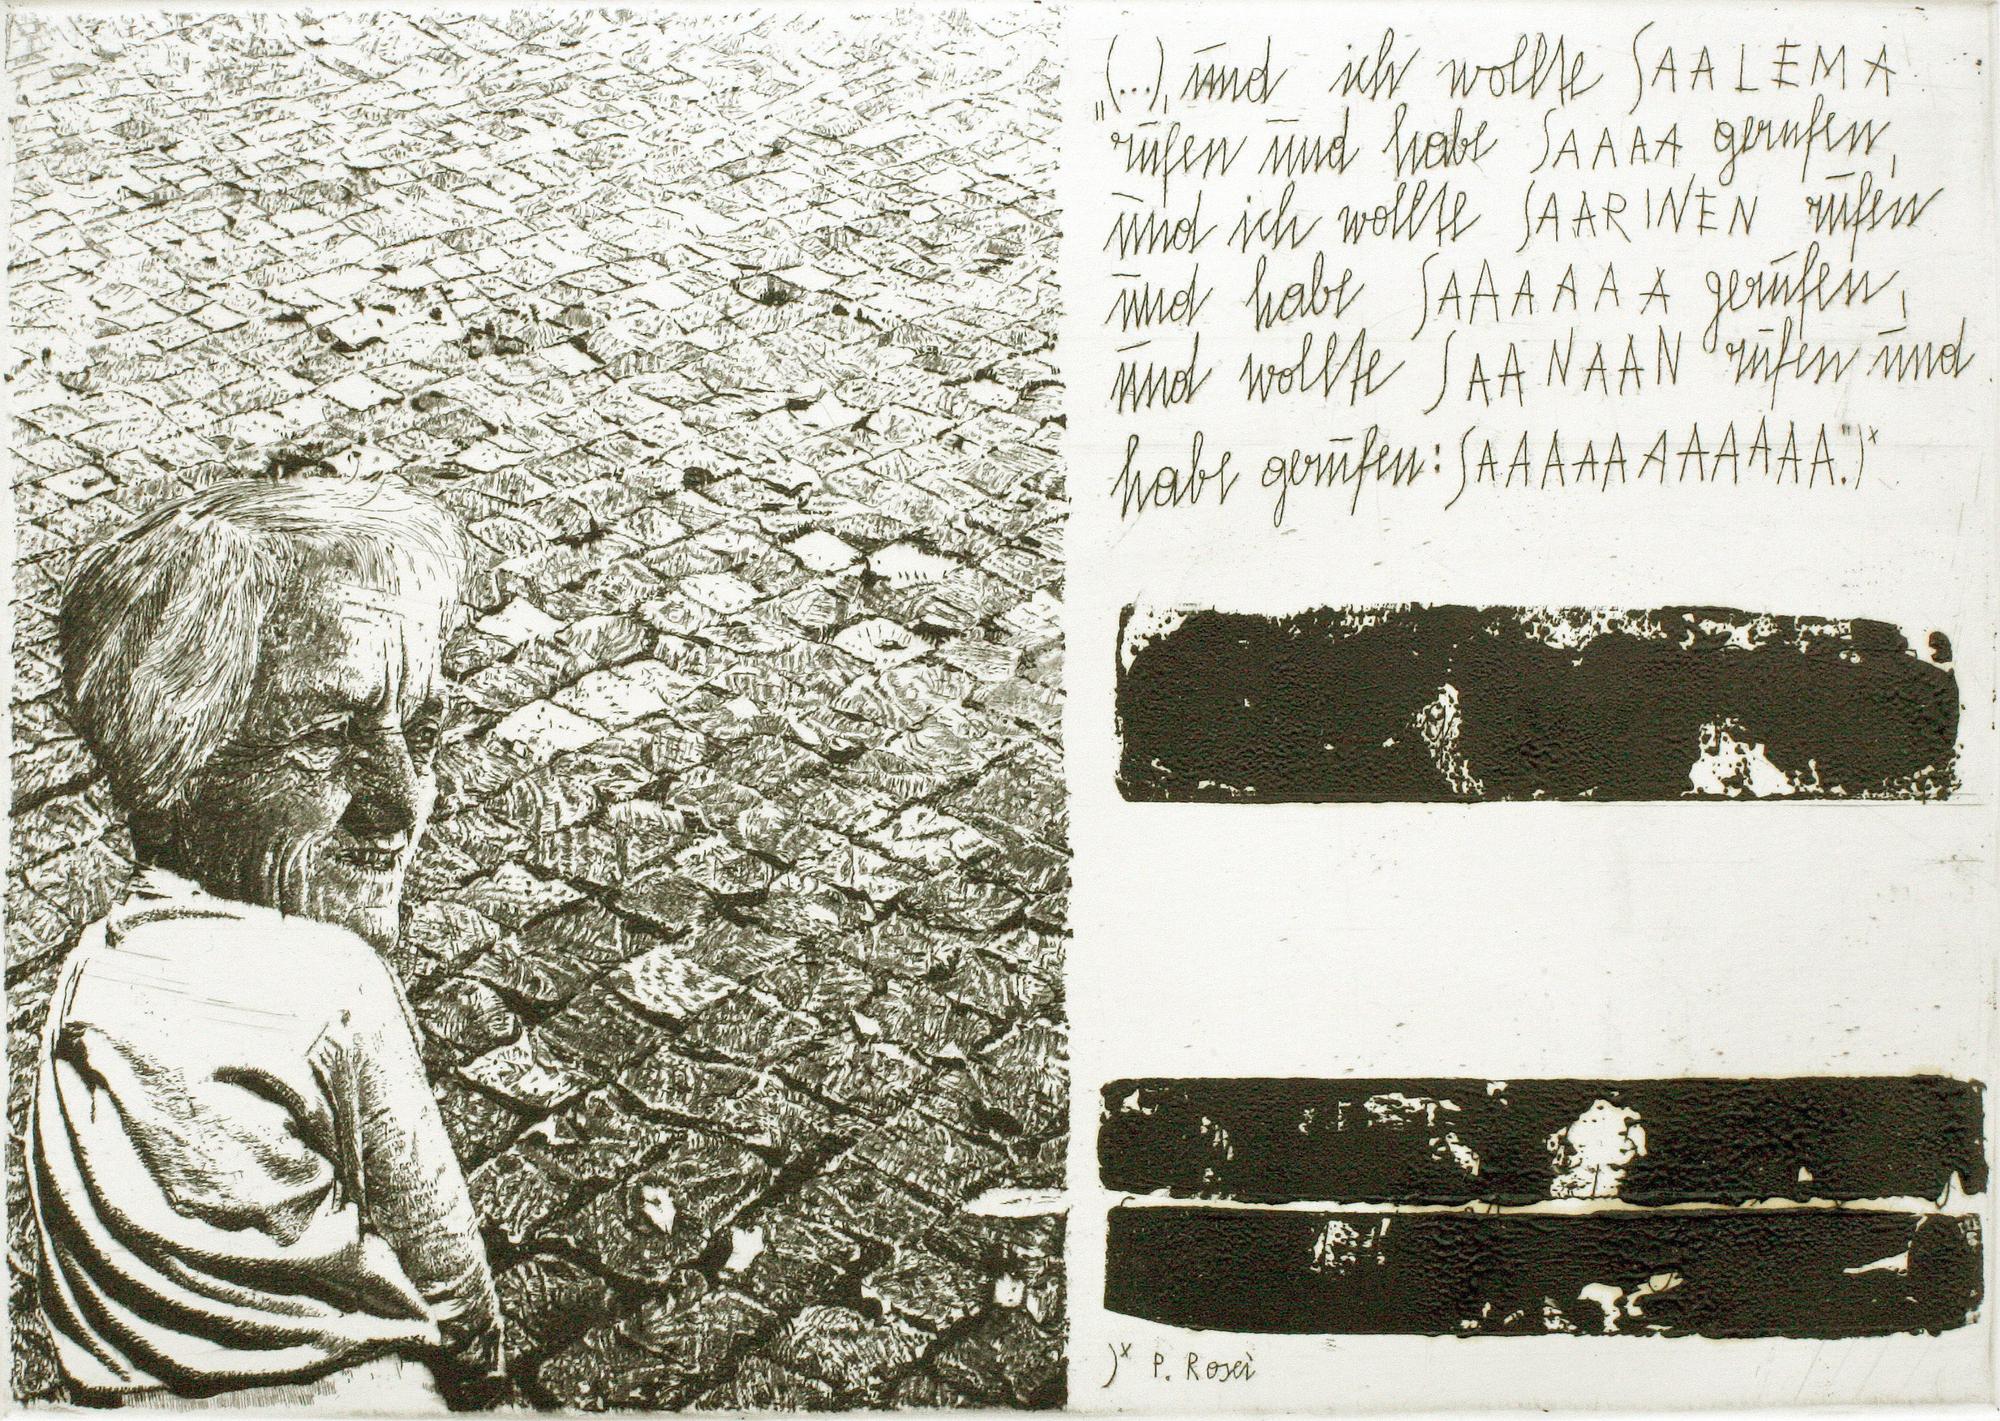 „(...), und ich wollte SAALEMA
rufen und habe SAAAA gerufen,
und ich wollte SAARINEN rufen
und habe SAAAAAA gerufen,
und wollte SAANAAN rufen und
habe gerufen: SAAAAAAAAAAA.")x
)x P. Rosei